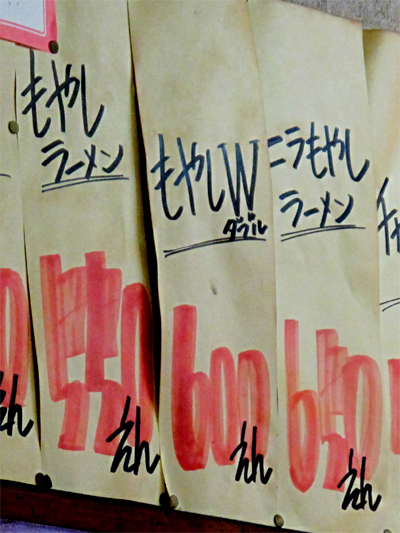 もやし
ラーメン
550
えん
もやしW
ダブル
600
えん
ニラもやし
ラーメン
650
えん
チャ
0
えん